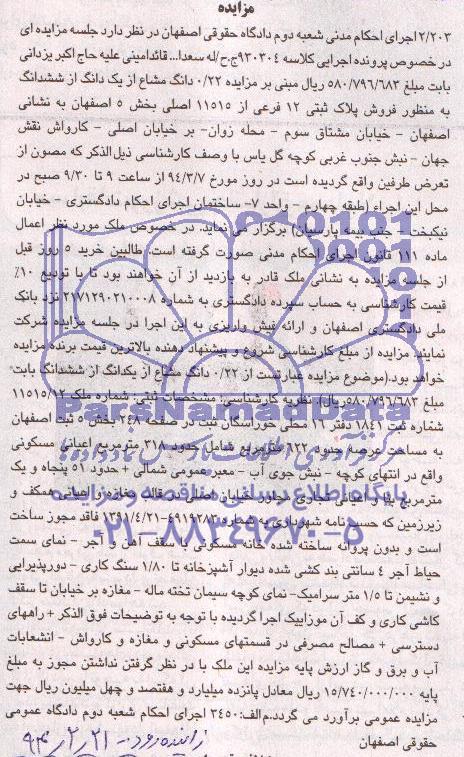 مزایده
۲/۲۰۳ اجرای احکام مدنی شعبه دوم دادگاه حقوقی اصفهان در نظر دارد جلسه مزایده ای
در خصوص پرونده اجرایی کلاسه ۹۳۰۳۰۴ج.ح/له سعدا... قائدامینی علیه حاج اکبر یزدانی
بابت مبلغ ۵۸۰/۷۹۶/۶۸۳ ریال مبنی بر مزایده ۰/۲۲ دانگ مشاع از یک دانگ از ششدانگ
به منظور فروش پلاک ثبتی ۱۲ فرعی از ۱۱۵۱۵ اصلی بخش ۵ اصفهان به نشانی
اصفهان - خیابان مشتاق سوم - محله زوان- بر خیابان اصلی - کارواش نقش
جهان - نبش جنوب غربی کوچه گل یاس با وصف کارشناسی ذیل الذکر که مصون از
تعرض طرفین واقع گردیده است در روز مورخ ۹۴/۳/۷ از ساعت ۹ تا ۹/۳۰ صبح در
محل این اجراء (طبقه چهارم - واحد ۷- ساختمان اجرای احکام دادگستری - خیابان
نیکبخت - جنب بیمه پارسیان) برگزار می نماید. در خصوص ملک مورد نظر اعمال
ماده ۱۱۱ قانون اجرای احکام مدنی صورت گرفته است. طالبین خرید ۵ روز قبل
از جلسه مزایده به نشانی ملک قادر به بازدید از آن خواهند بود تا با تودیع ۱۰٪
قیمت کارشناسی به حساب سپرده دادگستری به شماره ۲۱۷۱۲۹۰۲۱۰۰۰۸ نزد بانک
ملی دادگستری اصفهان و ارائه فیش واریزی به این اجرا در جلسه مزایده شرکت
نمایند. مزایده از مبلغ کارشناسی شروع و پیشنهاد دهنده بالاترین قیمت برنده مزایده
خواهد بود.(موضوع مزایده عبارتست از ۰/۲۲ دانگ مشاع از یکدانگ از ششدانگ بابت
مبلغ ۵۸۰/۷۹۶/۶۸۳ ریال) نظریه کارشناسی: مشخصات ثبتی: شماره ملک ۱۱۵۱۵/۱۲
شماره ثبت ۱۸۴۱ دفتر ۱۶ محلی خوراسگان ثبت در صفحه ۲۴۸ بخش ۵ ثبت اصفهان
به مساحت عرصه حدود ۶۲۲ مترمربع شامل حدود ۳۱۸ مترمربع اعیانی مسکونی
واقع در انتهای کوچه - نبش جوی آب - معبر عمومی شمالی + حدود ۵۱ پنجاه و یک
مترمربع بنا و اعیانی تجاری مجاور خیابان اصلی در قالب مغازه و اعیانی همکف و
زیرزمین که حسب نامه شهرداری به شماره ۴۹۱۹۲۸۳-۱۳۹۱/۴/۲۱ فاقد مجوز ساخت
است و بدون پروانه ساخته شده خانه مسکونی با سقف آهن و آجر - نمای سمت
حیاط آجر ۴ سانتی بند کشی شده دیوار آشپزخانه تا ۱/۸۰ سنگ کاری - دورپذیرایی
و نشیمن تا ۱/۵ متر سرامیک- نمای کوچه سیمان تخته ماله - مغازه بر خیابان تا سقف
کاشی کاری و کف آن موزاییک اجرا گردیده با توجه به توضیحات فوق الذکر + راههای
دسترسی + مصالح مصرفی در قسمتهای مسکونی و مغازه و کارواش - انشعابات
آب و برق و گاز ارزش پایه مزایده این ملک با در نظر گرفتن نداشتن مجوز به مبلغ
پایه ۱۵/۷۴۰/۰۰۰/۰۰۰ ریال معادل پانزده میلیارد و هفتصد و چهل میلیون ریال جهت
مزایده عمومی برآورد می گردد.م الف:۳۴۵۰ اجرای احکام شعبه دوم دادگاه عمومی
حقوقی اصفهان
زاینده رود - ۹۴/۲/۲۱
ParsNamadData
پایگاه اطلاع رسانی مناقصه و مزایده
۰۲۱-۸۸۳۴۹۶۷۰-۵